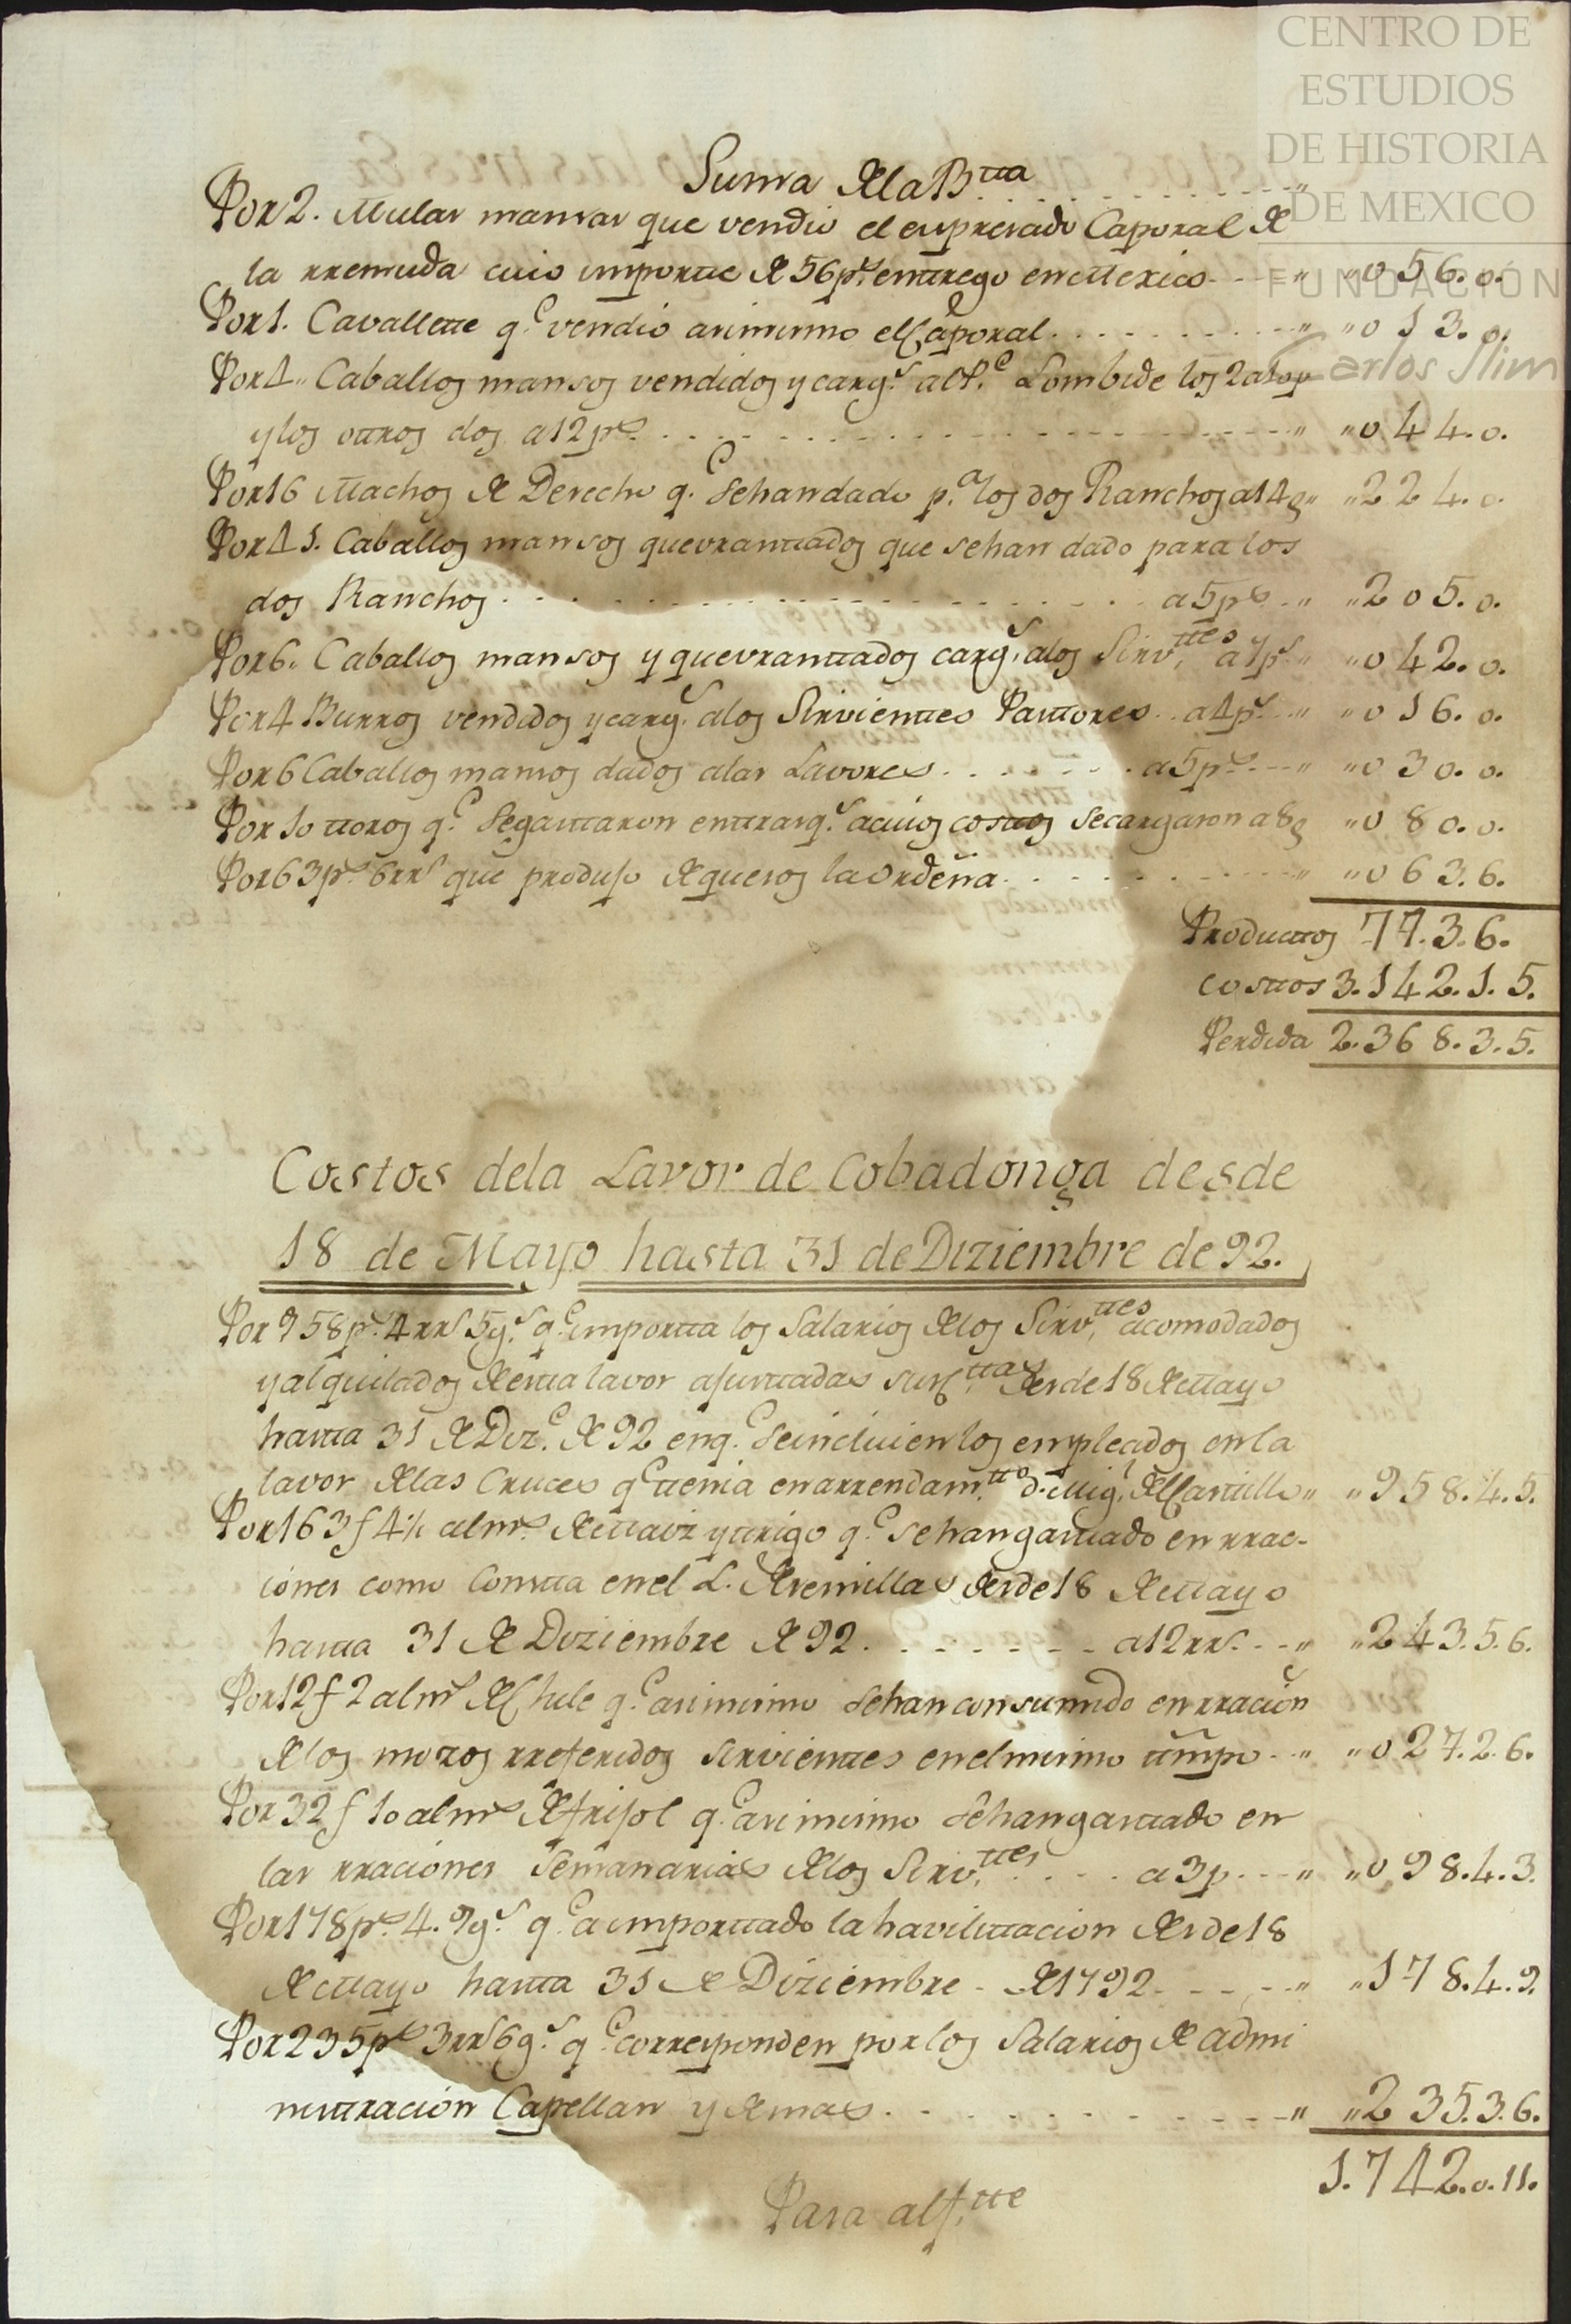 CENTRO DE
ESTUDIOS
DE HISTORIA
DE MEXICO
FUNDACIÓN
Carlos Slim
Suma de la B.tta
Por 2. Mulas mansas que vendio el expresado Caporal de
la rremuda cuio importe de 56 p.s entrego en Mexico " "056.0.
Por 1. Cavallette q.e vendio asimismo el Caporal " "013.0.
Por 4" Caballos mansos vendidos y carg.s al P.e Lombide los 2 a 10 p
y los otros dos a 12 p.s " "044.0.
Por 16 Machos de Derecho q.e se han dado p.a los dos Ranchos a 14 p " "224.0.
Por 41. Caballos mansos quevrantados que se han dado para los
dos Ranchos a 5 p.s " "205.0.
Por 6" Caballos mansos y quevrantados carg.s a los Sirv.ttes a 7 p.s " "042.0.
Por 4 Burros vendidos y carg.s a los Sirvientes Pastores a 4 p.s " "016.0.
Por 6 Caballos mansos dados a las Lavores a 5 p.s " "030.0.
Por 10 ttoros q.e se gastaron en trasq.s a cuios costtos se cargaron a 8 p "080.0.
Por 63 p.s 6 rr.s que produjo de quesos la Ordeña " "063.6.
Producttos 773.6.
costtos 3.142.1.5.
Perdida 2.368.3.5.
Costos dela Lavor de Cobadonga desde
18 de Mayo hasta 31 de Diziembre de 92.
Por 958 p.s 4 rr.s 5 g.s q.e importta los Salarios de los Sirv.ttes acomodados
y alquilados de esta lavor ajustadas sus C.ttas desde 18 de Mayo
hasta 31 de Diz.e de 92 en q.e se incluien los empleados en la
lavor de las Cruces q.e tenia en arrendam.tto d. Mig.l del Castillo " "958.4.5.
Por 163 f 4½ alm.s de Maiz y trigo q.e se han gastado en rrac-
iones como Constta en el L. de Semillas desde 18 de Mayo
hasta 31 de Diziembre de 92 a 12 rr.s " "243.5.6.
Por 12 f 2 alm.s de Chile q.e asimismo se han consumido en rración
de los mozos rreferidos sirvientes en el mismo ttmpo " "027.2.6.
Por 32 f 10 alm.s de frisol q.e asimismo se han gastado en
las rraciones Semanarias de los Sirv.ttes a 3 p " "098.4.3.
Por 178 p.s 4. 9 g.s q.e a importado la havilitacion desde 18
de Mayo hasta 31 de Diziembre de 1792 " "178.4.9.
Por 235 p.s 3 rr.s 6 g.s q.e corresponden por los Salarios de admi
nistración Capellan y demas " "235.3.6.
1.742.0.11.
Pasa al f.tte